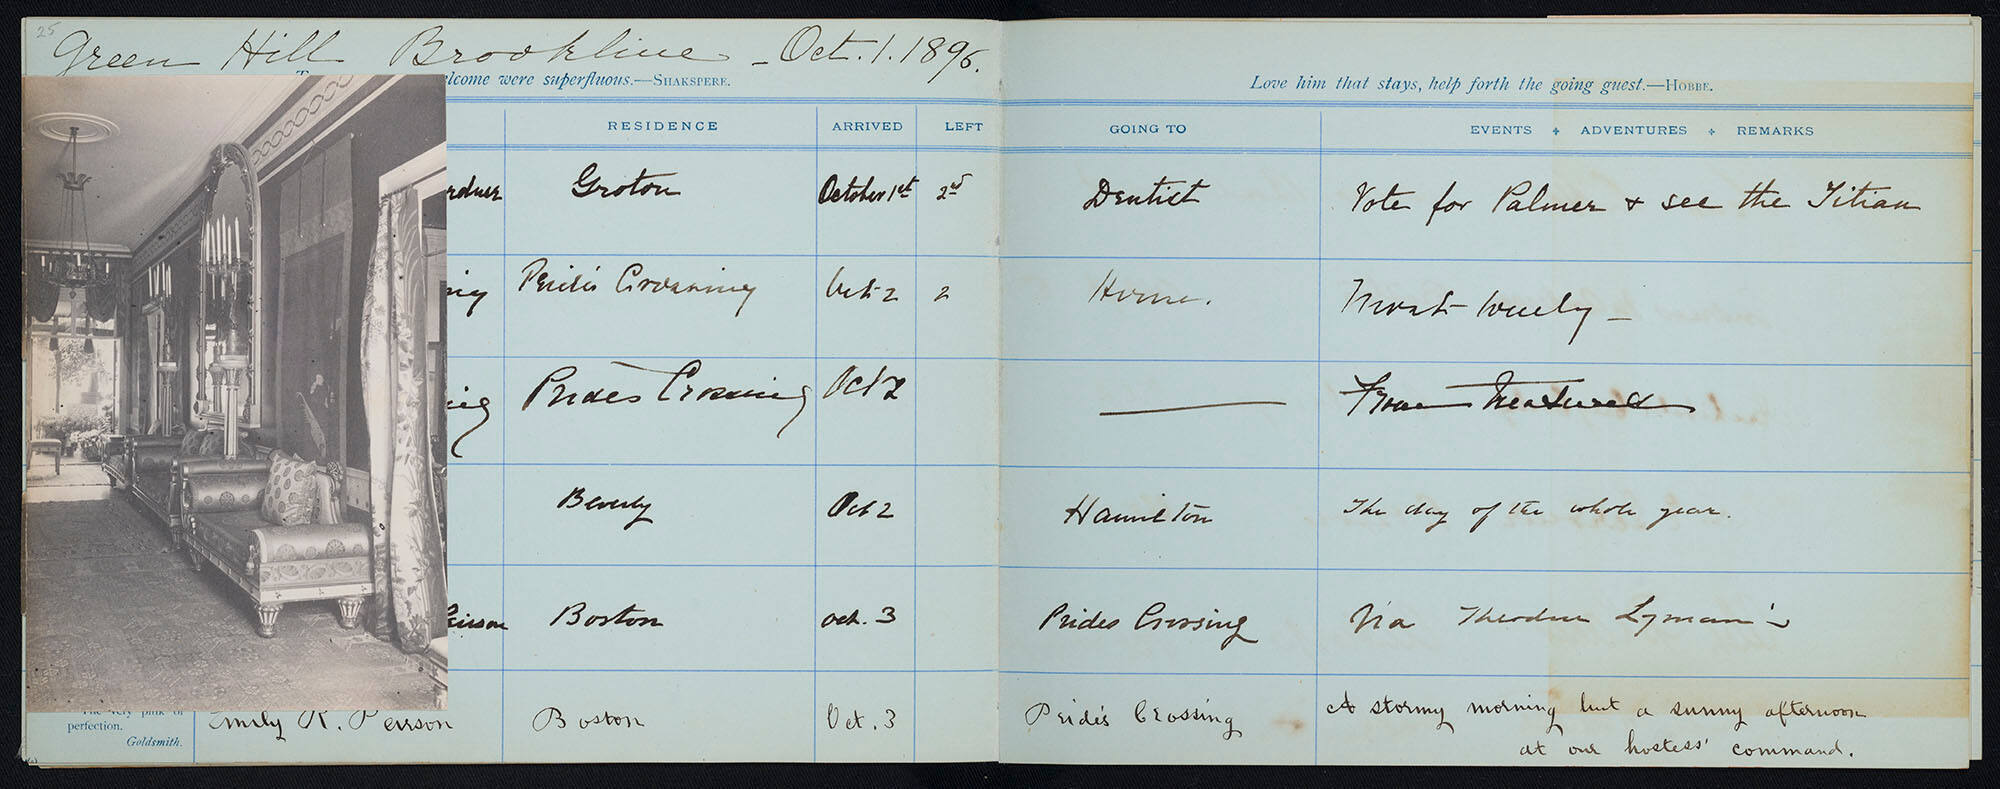 25
Green Hill Brookline - Oct. 1. 1896.
elcome were superfluous.—SHAKSPERE.
Love him that stays, help forth the going guest.—HOBBE.
RESIDENCE ARRIVED LEFT GOING TO EVENTS ✦ ADVENTURES ✦ REMARKS
rdner Groton October 1st 2nd Dentist Vote for Palmer & see the Titian
Pride's Crossing Oct 2 2 Home. Most lovely _
Prides Crossing Oct 2 —
Beverly Oct 2 Hamilton The day of the whole year.
eirson Boston Oct. 3 Prides Crossing Via Theodore Lyman's
The very pink of
perfection.
Goldsmith.
Emily R. Peirson Boston Oct. 3 Pride's Crossing A stormy morning but a sunny afternoon
at our hostess' command.